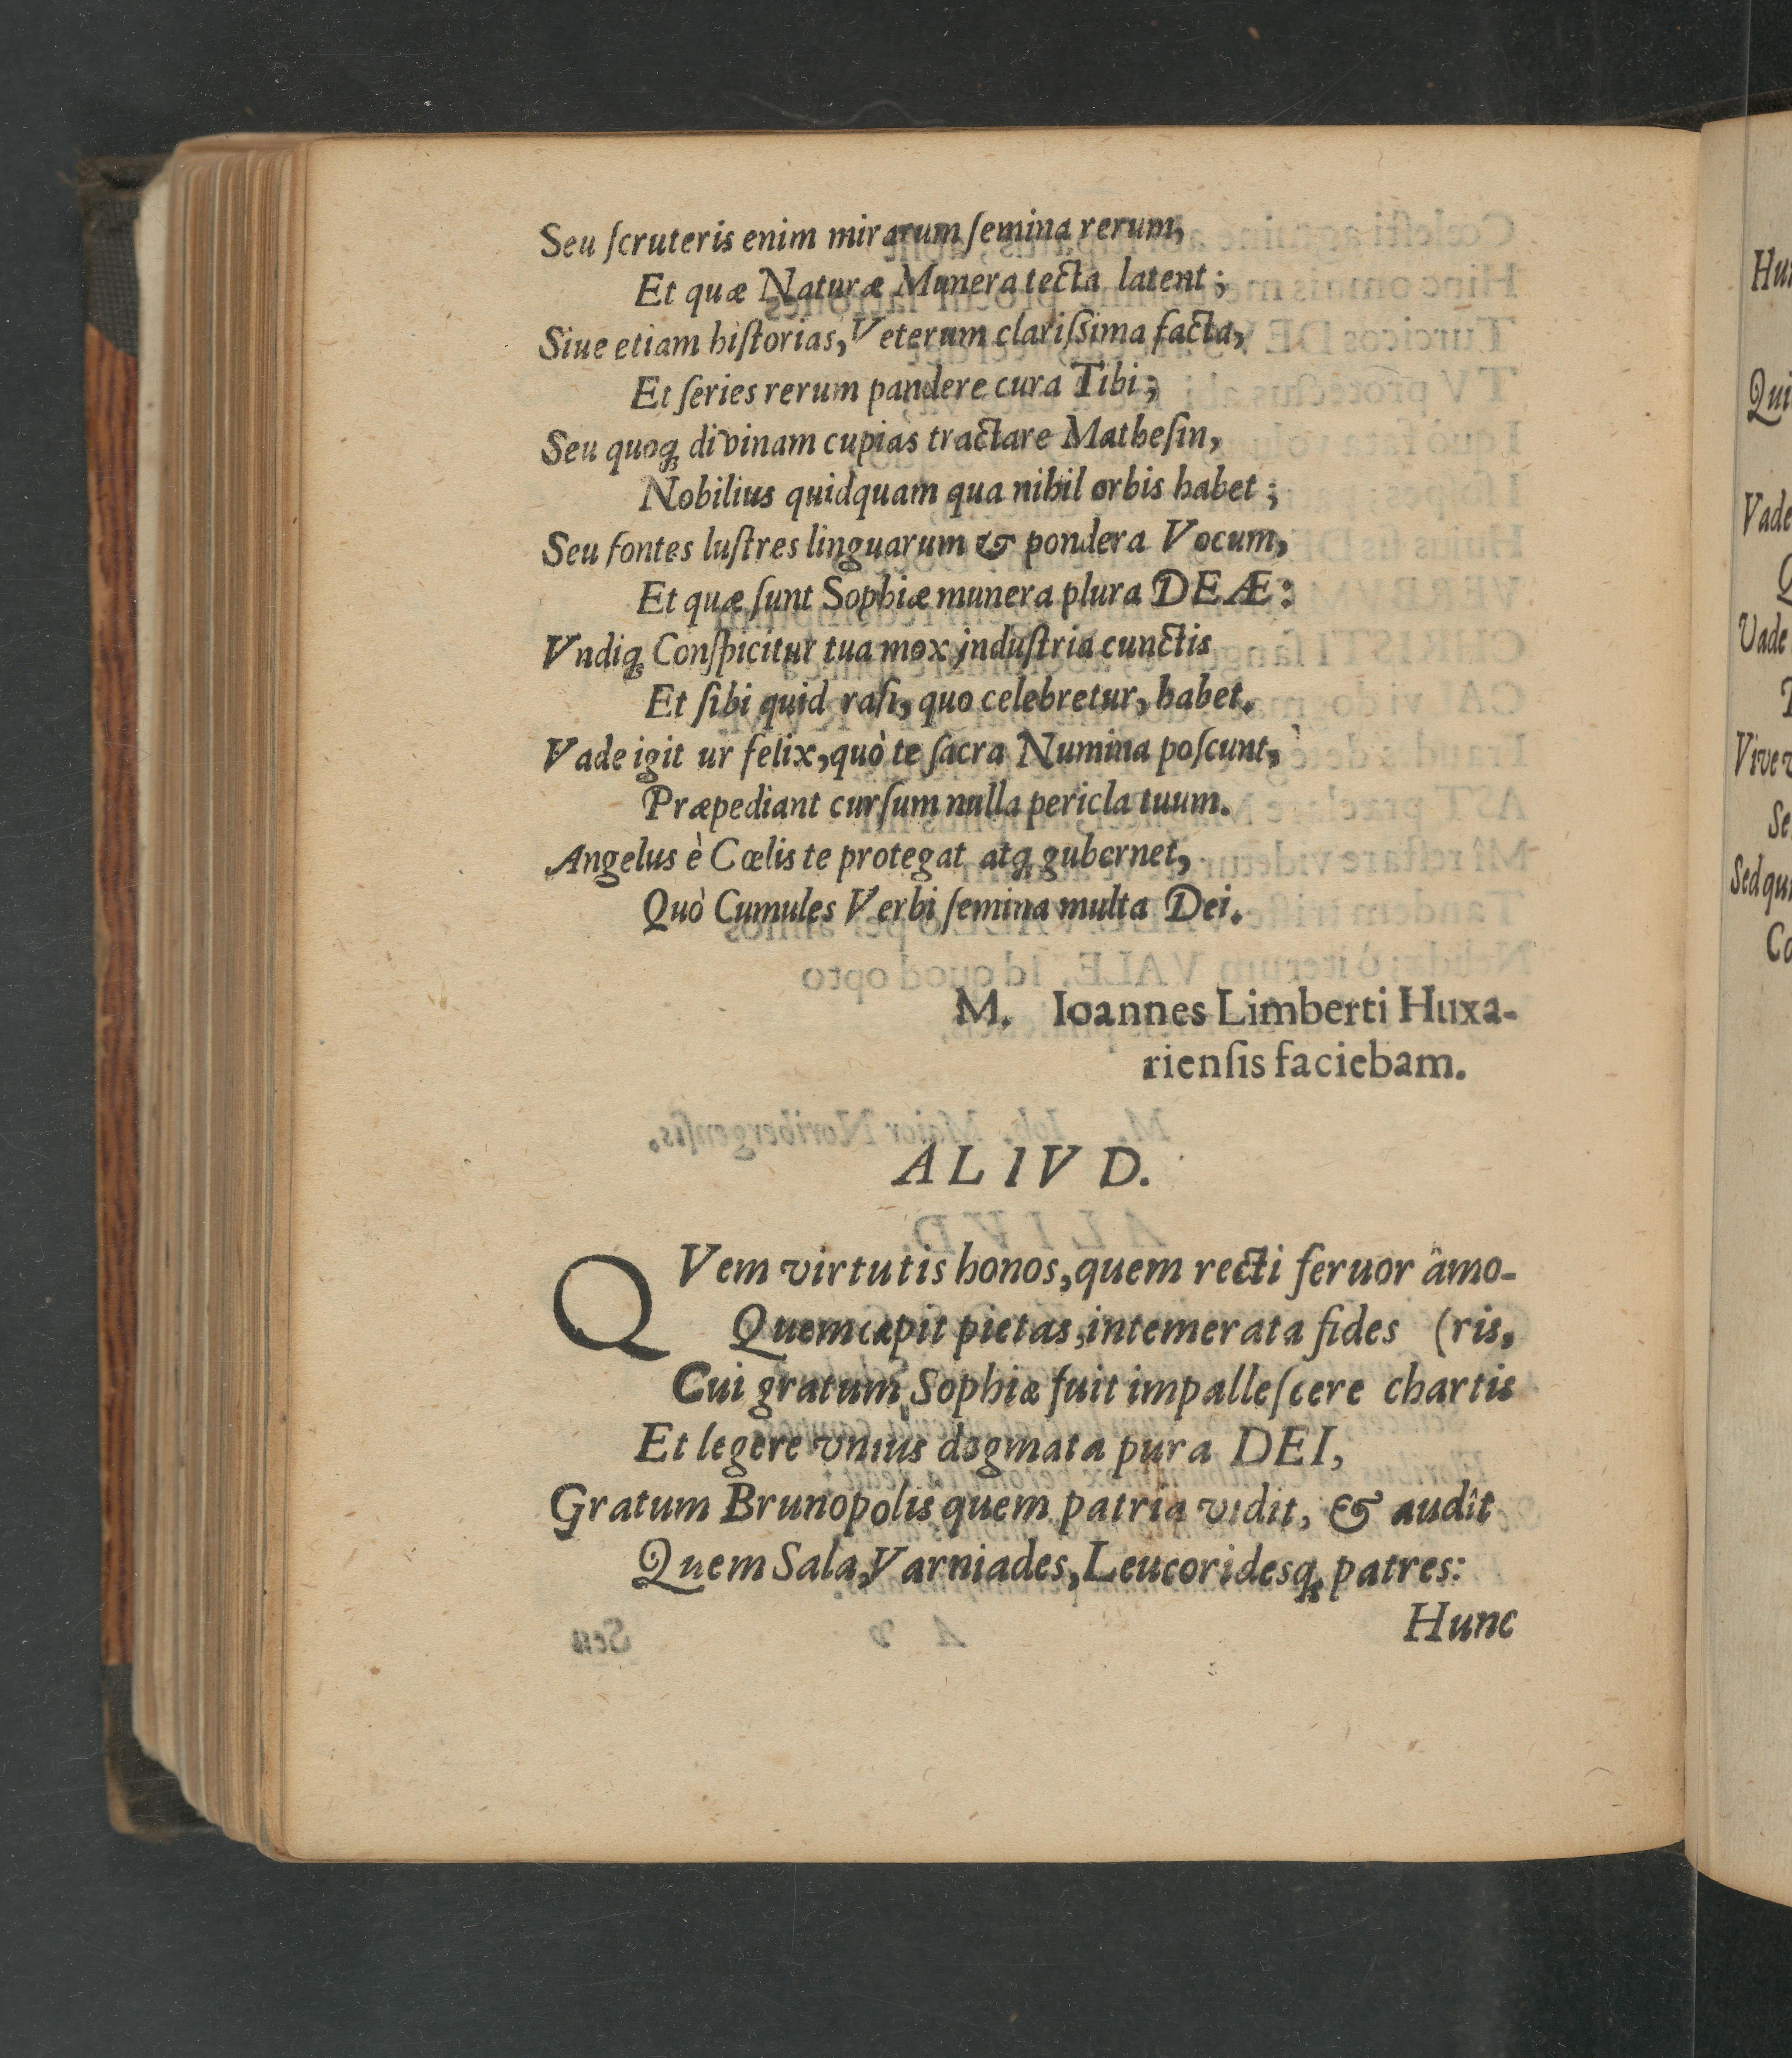 Seu ſcruteris enim mirarum ſemina rerum,
Et quæ Naturæ Munera tecta latent;
Siue etiam hiſtorias, Veterum clariſſima facta,
Et ſeries rerum pandere cura Tibi;
Seu quoq; divinam cupias tractare Matheſin,
Nobilius quidquam qua nihil orbis habet;
Seu fontes luſtres linguarum & pondera Vocum,
Et quæ ſunt Sophiæ munera plura DEÆ:
Vndiq; Conſpicitur tua mox induſtria cunctis
Et ſibi quid raſi, quo celebretur, habet.
Vade igit ur felix, quò te ſacra Numina poſcunt,
Præpediant curſum nulla pericla tuum.
Angelus è Cœlis te protegat atq; gubernet,
Quò Cumules Verbi ſemina multa Dei.
M. Ioannes Limberti Huxa-
rienſis faciebam.
ALIVD.
QVem virtutis honos, quem recti feruor amo-
Quem cæpit pietas, intemerata fides (ris,
Cui gratum Sophiæ fuit impalleſcere chartis
Et legere vnius dogmata pura DEI,
Gratum Brunopolis quem patria vidit, & audît
Quem Sala, Varniades, Leucoridesq; patres:
Hunc
Qui
Vade
Vade
Se
Sed